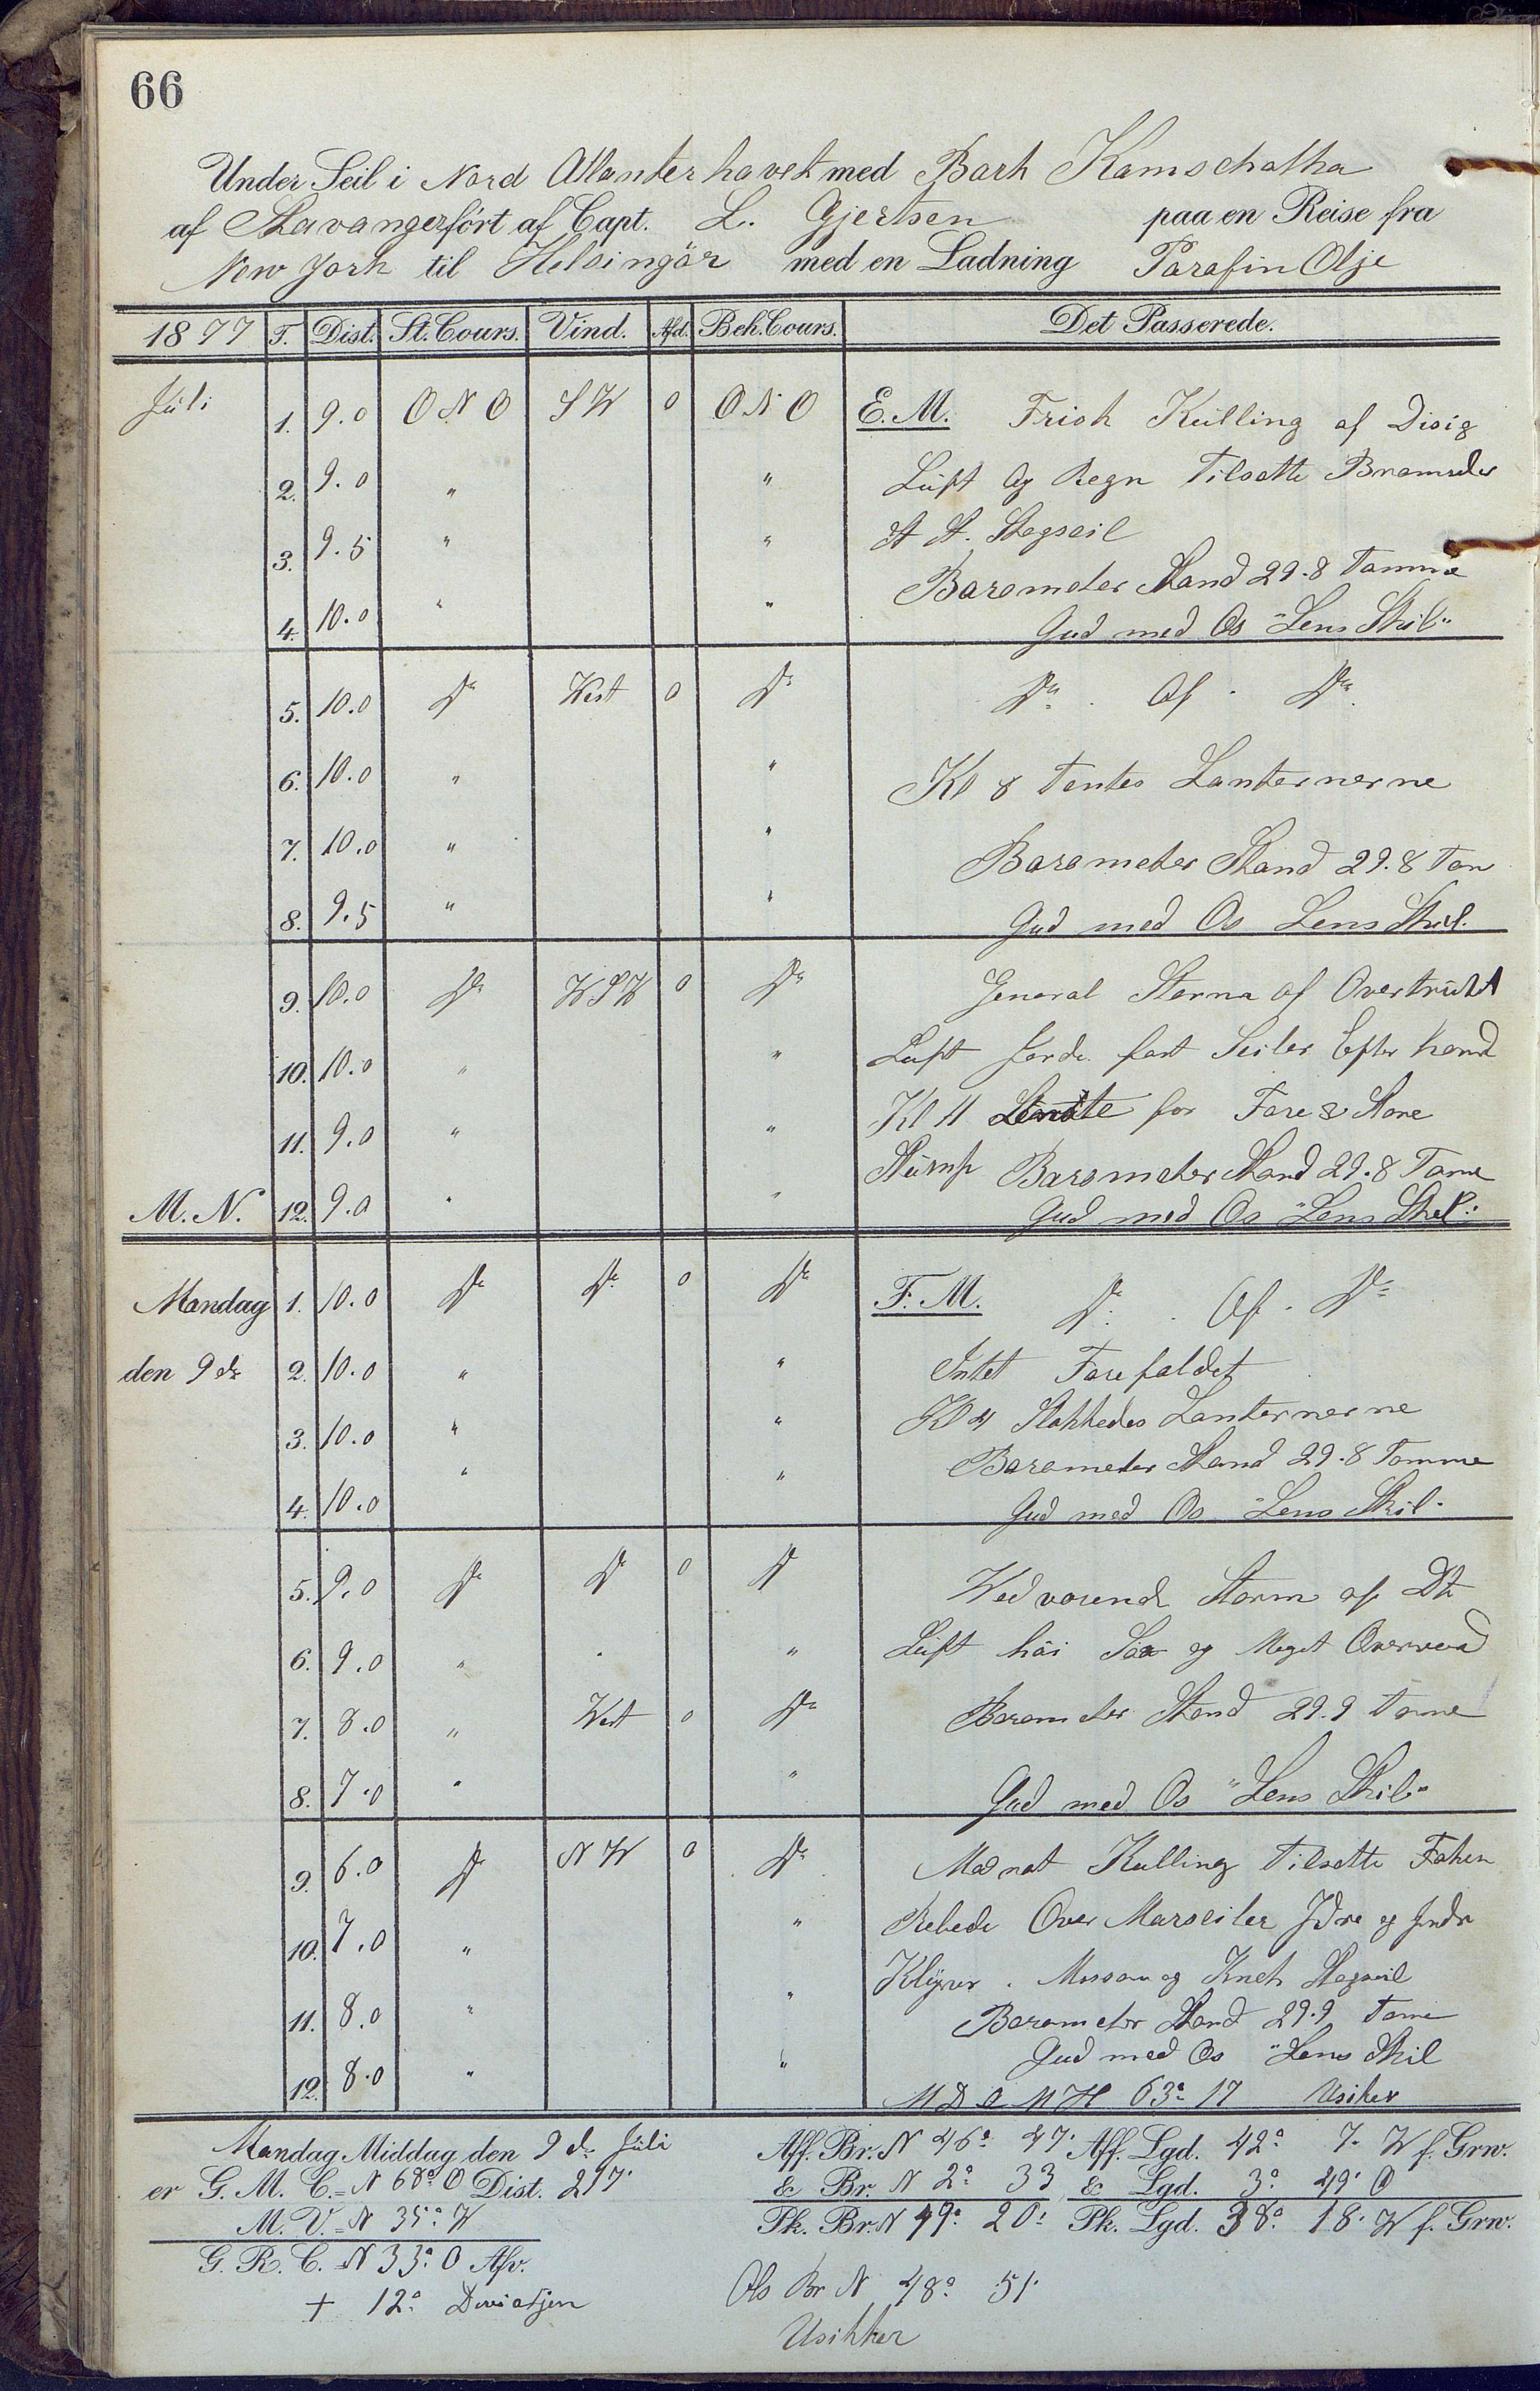 66
Under Seil i Nord Atlanterhavet med Bark Kamschatka
af Stavanger fört af Capt. L. Gjertsen paa en Reise fra
New York til Helsingör med en Ladning Parafin Olje
1877 T. Dist. St. Cours. Vind. Afd. Beh. Cours. Det Passerede.
Juli 1. 9.0 ONO SW 0 ONO E.M. Frisk Kulling af Disig
2. 9.0 " " Luft Og Regn Tilsatte
3. 9.5 " " St. Stagseil
Barometer Stand 29.8 Tomme
4. 10.0 " " Gud med Os "Lens Skib"
5. 10.0 Do West 0 Do Do. Af. Do.
6. 10.0 " " Kl 8 Tentes Lanternerne
7. 10.0 " " Barometer Stand 29.8 Tom
8. 9.5 " " Gud med Os Lens Skib.
9. 10.0 Do WSW 0 Do General Storm af Overtrukkt
10. 10.0 " " Luft fast Seiler Efter haand
11. 9.0 " " Kl 11 for Fore & Store
Stump Barometer Stand 29.8 Tome
M. N. 12. 9.0 " " Gud med Os "Lens Skib"
Mandag 1. 10.0 Do Do 0 Do F. M. Do. Af. Do
den 9de 2. 10.0 " " Intet Forefaldet
3. 10.0 " " Kl 4 Slukkedes Lanternerne
Barometer Stand 29.8 Tomme
4. 10.0 " " Gud med Os "Lens Skib"
5. 9.0 Do Do 0 Do Wedvarende Storm af Do
6. 9.0 " " " Luft höi Söe og Meget Overvand
7. 8.0 " West 0 Do Barometer Stand 29.9 Tome
8. 7.0 " " Gud med Os "Lens Skib"
9. 6.0 Do NW 0 Do Kulling Tilsatte Foken
10. 7.0 " " Rebede Over Marseiler Ydre og Indr
11. 8.0 " " Klyver. Mesan og Stagseil
Barometer Stand 29.9 Tome
Gud med Os "Lens Skib
12. 8.0 " " 63° 17 Usiker
Mandag Middag den 9 d. Juli
er G. M. C. = N 68° O Dist. 217'
M. V. = N 35° W
G. R. C. = N 33° O Afv.
+ 12° Deviatjon
Aff. Br. N 46° 47' Aff. Lgd. 42° 7' W f. Grw.
& Br. N 2° 33 & Lgd. 3° 49' O
Pk. Br. N 49° 20' Pk. Lgd. 38° 18' W f. Grw.
Obs Br N 48° 51'
Usikker